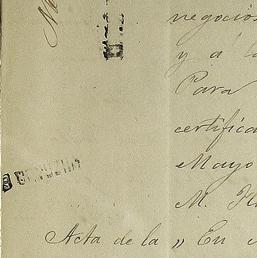 negocios
y á l
Para
certifica
Mayo
M.
Acta de la „ En